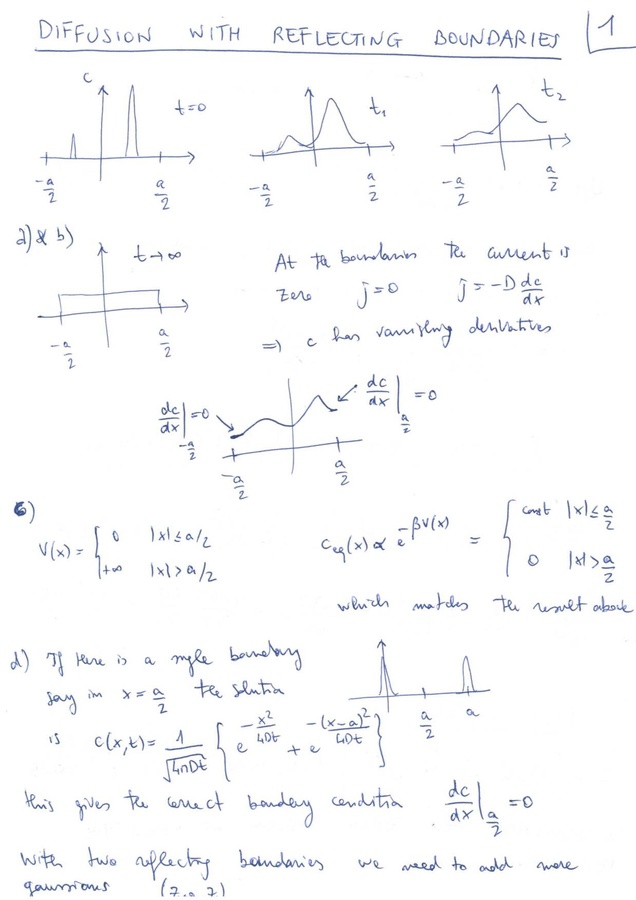 DIFFUSION WITH REFLECTING BOUNDARIES 1
c t=0 t₁ t₂
-a/2 a/2 -a/2 a/2 -a/2 a/2
a) & b) t→∞
At the boundaries the current is
zero j=0 j=-D dc/dx
-a/2 a/2
⇒ c has vanishing derivatives
dc/dx|_{-a/2}=0 dc/dx|_{a/2}=0
-a/2 a/2
c)
V(x) = { 0 |x|≤a/2
+∞ |x|>a/2
c_eq(x) ∝ e^{-βV(x)} = { const |x|≤a/2
0 |x|>a/2
which matches the result above
d) If there is a single boundary
say in x=a/2 the solution
a/2 a
is c(x,t)= 1/√(4πDt) { e^{-x²/4Dt} + e^{-(x-a)²/4Dt} }
this gives the correct boundary condition dc/dx|_{a/2}=0
With two reflecting boundaries we need to add more
gaussians (7.27)